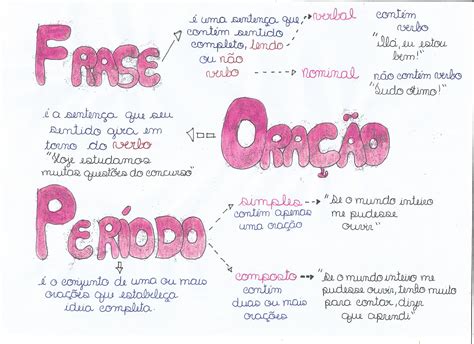 FRASE
é uma sentença que
contém sentido
completo, tendo
ou não
verbo
verbal
contém
verbo
"Olá, eu estou
bem!"
nominal
não contém verbo
"Tudo ótimo!"
é a sentença que seu
sentido gira em
torno do verbo
"Hoje estudamos
muitas questões do concurso"
ORAÇÃO
PERÍODO
é o conjunto de uma ou mais
orações que estabeleça
ideia completa.
simples
contém apenas
uma oração
"Se o mundo inteiro
me pudesse
ouvir"
composto
contém
duas ou mais
orações
"Se o mundo inteiro me
pudesse ouvir, tenho muito
para contar, dizer
que aprendi"